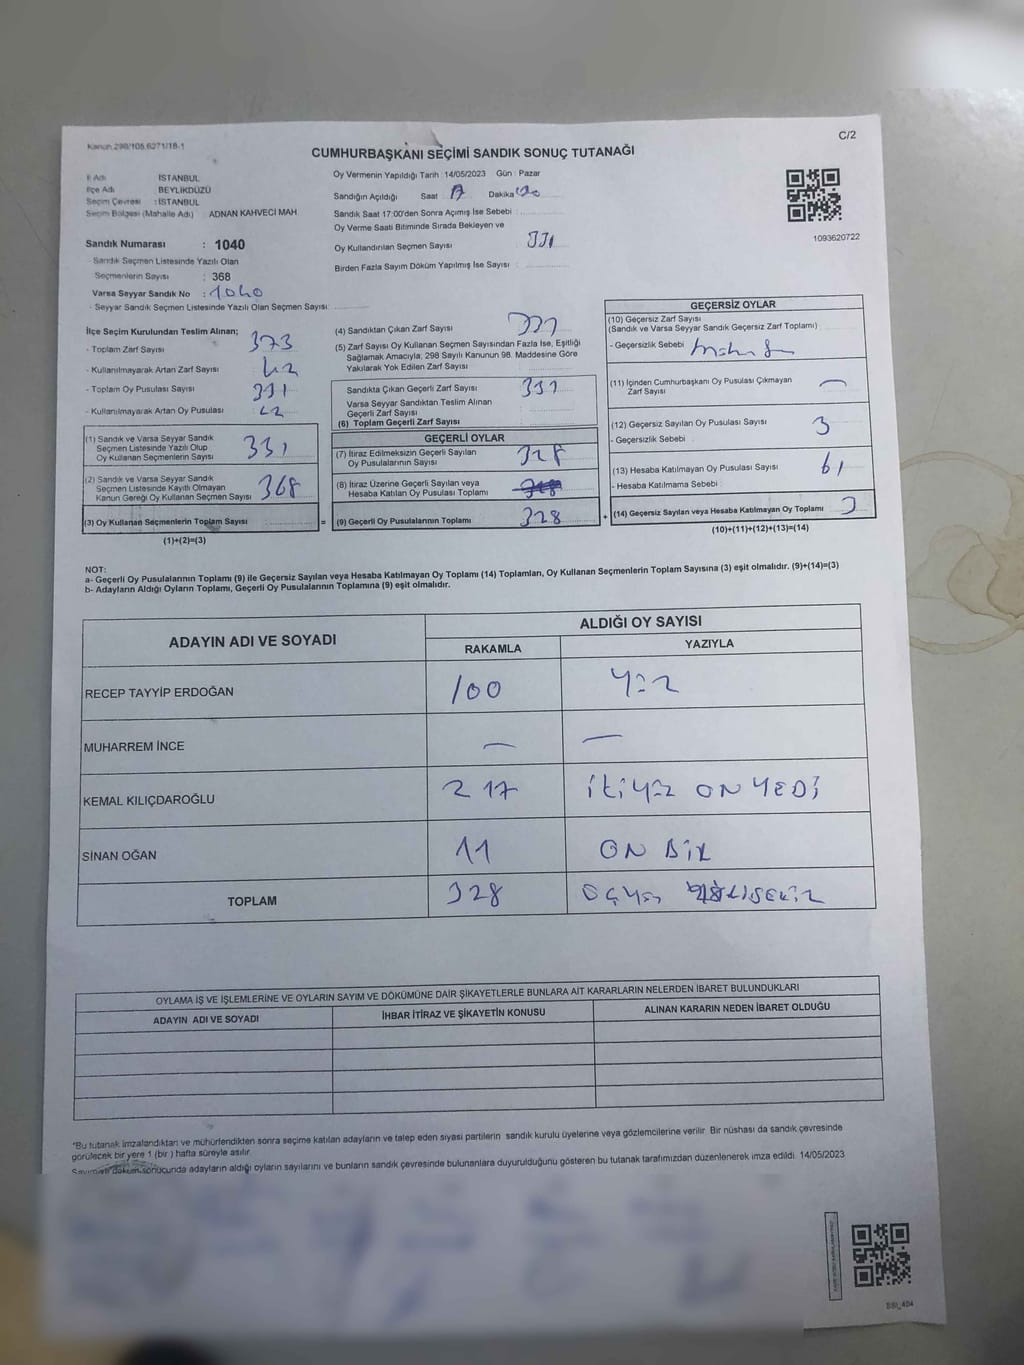 Kanun 298/105,6271/18-1
C/2
CUMHURBAŞKANI SEÇİMİ SANDIK SONUÇ TUTANAĞI
İl Adı : İSTANBUL
İlçe Adı : BEYLİKDÜZÜ
Seçim Çevresi : İSTANBUL
Seçim Bölgesi (Mahalle Adı) : ADNAN KAHVECİ MAH
Sandık Numarası : 1040
- Sandık Seçmen Listesinde Yazılı Olan
Seçmenlerin Sayısı : 368
Varsa Seyyar Sandık No : 1040
- Seyyar Sandık Seçmen Listesinde Yazılı Olan Seçmen Sayısı
Oy Vermenin Yapıldığı Tarih : 14/05/2023 Gün : Pazar
Sandığın Açıldığı Saat 17 Dakika
Sandık Saat 17:00'den Sonra Açımış İse Sebebi :
Oy Verme Saati Bitiminde Sırada Bekleyen ve
Oy Kullandırılan Seçmen Sayısı : 331
Birden Fazla Sayım Döküm Yapılmış İse Sayısı :
1093620722
İlçe Seçim Kurulundan Teslim Alınan;
- Toplam Zarf Sayısı 373
- Kullanılmayarak Artan Zarf Sayısı 42
- Toplam Oy Pusulası Sayısı 331
- Kullanılmayarak Artan Oy Pusulası 42
(1) Sandık ve Varsa Seyyar Sandık
Seçmen Listesinde Yazılı Olup
Oy Kullanan Seçmenlerin Sayısı 331
(2) Sandık ve Varsa Seyyar Sandık
Seçmen Listesinde Kayıtlı Olmayan
Kanun Gereği Oy Kullanan Seçmen Sayısı 368
(3) Oy Kullanan Seçmenlerin Toplam Sayısı =
(1)+(2)=(3)
(4) Sandıktan Çıkan Zarf Sayısı 331
(5) Zarf Sayısı Oy Kullanan Seçmen Sayısından Fazla İse, Eşitliği
Sağlamak Amacıyla, 298 Sayılı Kanunun 98. Maddesine Göre
Yakılarak Yok Edilen Zarf Sayısı
Sandıkta Çıkan Geçerli Zarf Sayısı 331
Varsa Seyyar Sandıktan Teslim Alınan
Geçerli Zarf Sayısı
(6) Toplam Geçerli Zarf Sayısı
GEÇERLİ OYLAR
(7) İtiraz Edilmeksizin Geçerli Sayılan
Oy Pusulalarının Sayısı 328
(8) İtiraz Üzerine Geçerli Sayılan veya
Hesaba Katılan Oy Pusulası Toplamı
(9) Geçerli Oy Pusulalarının Toplamı 328 +
GEÇERSİZ OYLAR
(10) Geçersiz Zarf Sayısı
(Sandık ve Varsa Seyyar Sandık Geçersiz Zarf Toplamı)
- Geçersizlik Sebebi
(11) İçinden Cumhurbaşkanı Oy Pusulası Çıkmayan
Zarf Sayısı —
(12) Geçersiz Sayılan Oy Pusulası Sayısı 3
- Geçersizlik Sebebi
(13) Hesaba Katılmayan Oy Pusulası Sayısı
- Hesaba Katılmama Sebebi
(14) Geçersiz Sayılan veya Hesaba Katılmayan Oy Toplamı 3
(10)+(11)+(12)+(13)=(14)
NOT:
a- Geçerli Oy Pusulalarının Toplamı (9) ile Geçersiz Sayılan veya Hesaba Katılmayan Oy Toplamı (14) Toplamları, Oy Kullanan Seçmenlerin Toplam Sayısına (3) eşit olmalıdır. (9)+(14)=(3)
b- Adayların Aldığı Oyların Toplamı, Geçerli Oy Pusulalarının Toplamına (9) eşit olmalıdır.
ADAYIN ADI VE SOYADI ALDIĞI OY SAYISI
RAKAMLA YAZIYLA
RECEP TAYYİP ERDOĞAN 100 Yüz
MUHARREM İNCE — —
KEMAL KILIÇDAROĞLU 217 İKİYÜZ ONYEDİ
SİNAN OĞAN 11 ON BİR
TOPLAM 328 ÜÇYÜZ
OYLAMA İŞ VE İŞLEMLERİNE VE OYLARIN SAYIM VE DÖKÜMÜNE DAİR ŞİKAYETLERLE BUNLARA AİT KARARLARIN NELERDEN İBARET BULUNDUKLARI
ADAYIN ADI VE SOYADI İHBAR İTİRAZ VE ŞİKAYETİN KONUSU ALINAN KARARIN NEDEN İBARET OLDUĞU
*Bu tutanak imzalandıktan ve mühürlendikten sonra seçime katılan adayların ve talep eden siyasi partilerin sandık kurulu üyelerine veya gözlemcilerine verilir. Bir nüshası da sandık çevresinde
görülecek bir yere 1 (bir ) hafta süreyle asılır.
Sayım ve döküm sonucunda adayların aldığı oyların sayılarını ve bunların sandık çevresinde bulunanlara duyurulduğunu gösteren bu tutanak tarafımızdan düzenlenerek imza edildi. 14/05/2023
SSI_404